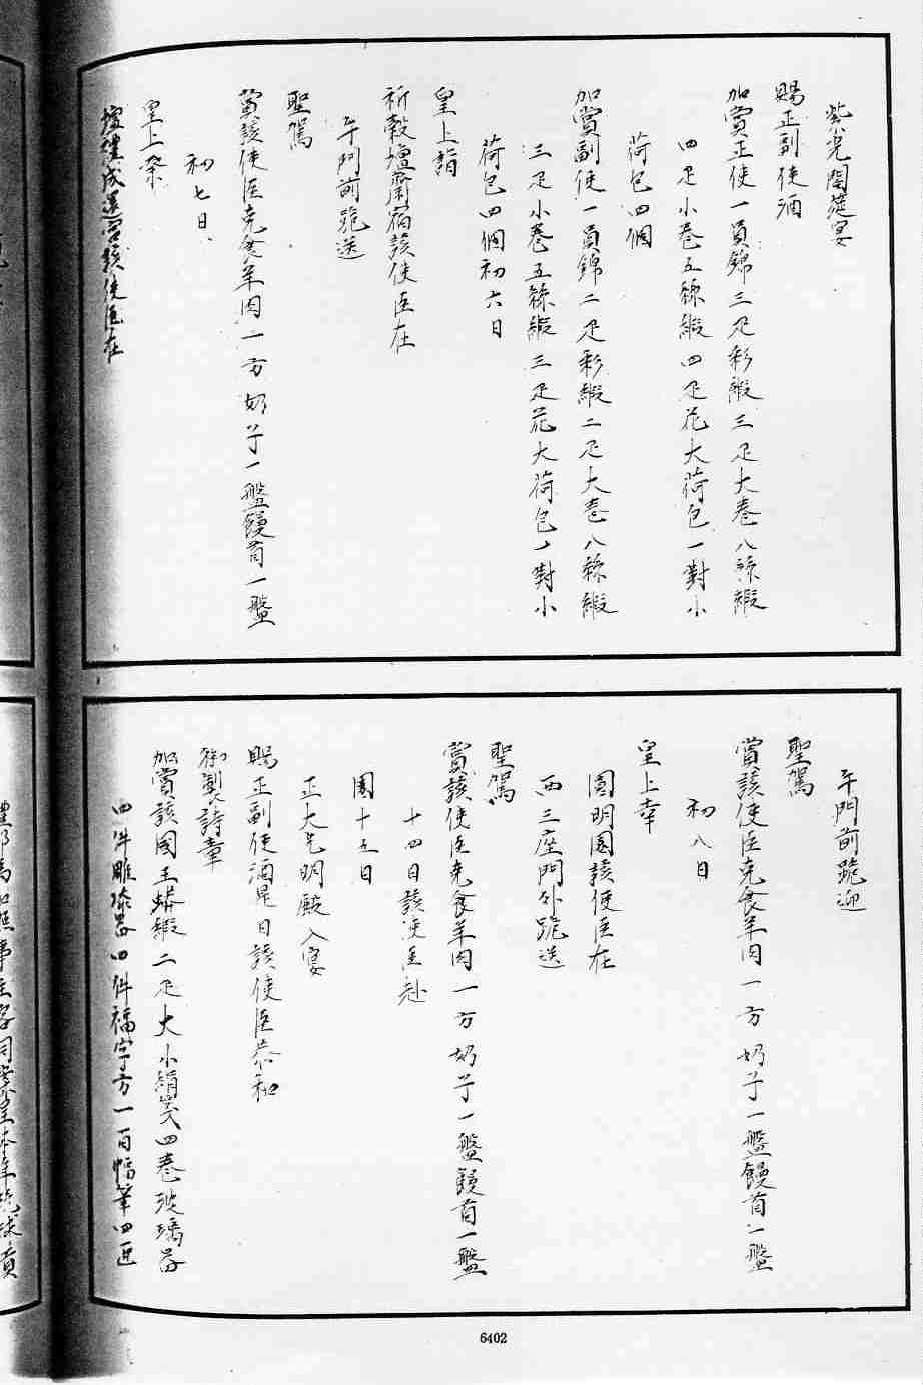 紫光閣筵宴
賜正副使酒
加賞正使一員錦三疋彩緞三疋大卷八絲緞
四疋小卷五絲緞四疋花大荷包一對小
荷包四個
加賞副使一員錦二疋彩緞二疋大卷八絲緞
三疋小卷五絲緞三疋花大荷包一對小
荷包四個初六日
皇上詣
祈穀壇齋宿該使臣在
午門前跪送
聖駕
賞該使臣克食羊肉一方奶子一盤饅首一盤
初七日
皇上祭
壇禮成還宮該使臣在
午門前跪迎
聖駕
賞該使臣克食羊肉一方奶子一盤饅首一盤
初八日
皇上幸
圓明園該使臣在
西三座門外跪送
聖駕
賞該使臣克食羊肉一方奶子一盤饅首一盤
十四日該使臣赴
園十五日
正大光明殿入宴
賜正副使酒是日該使臣恭和
御製詩章
加賞該國王蟒緞二疋大小絹箋四卷玻璃器
四件雕漆器四件福字方一百幅筆四匣
6402